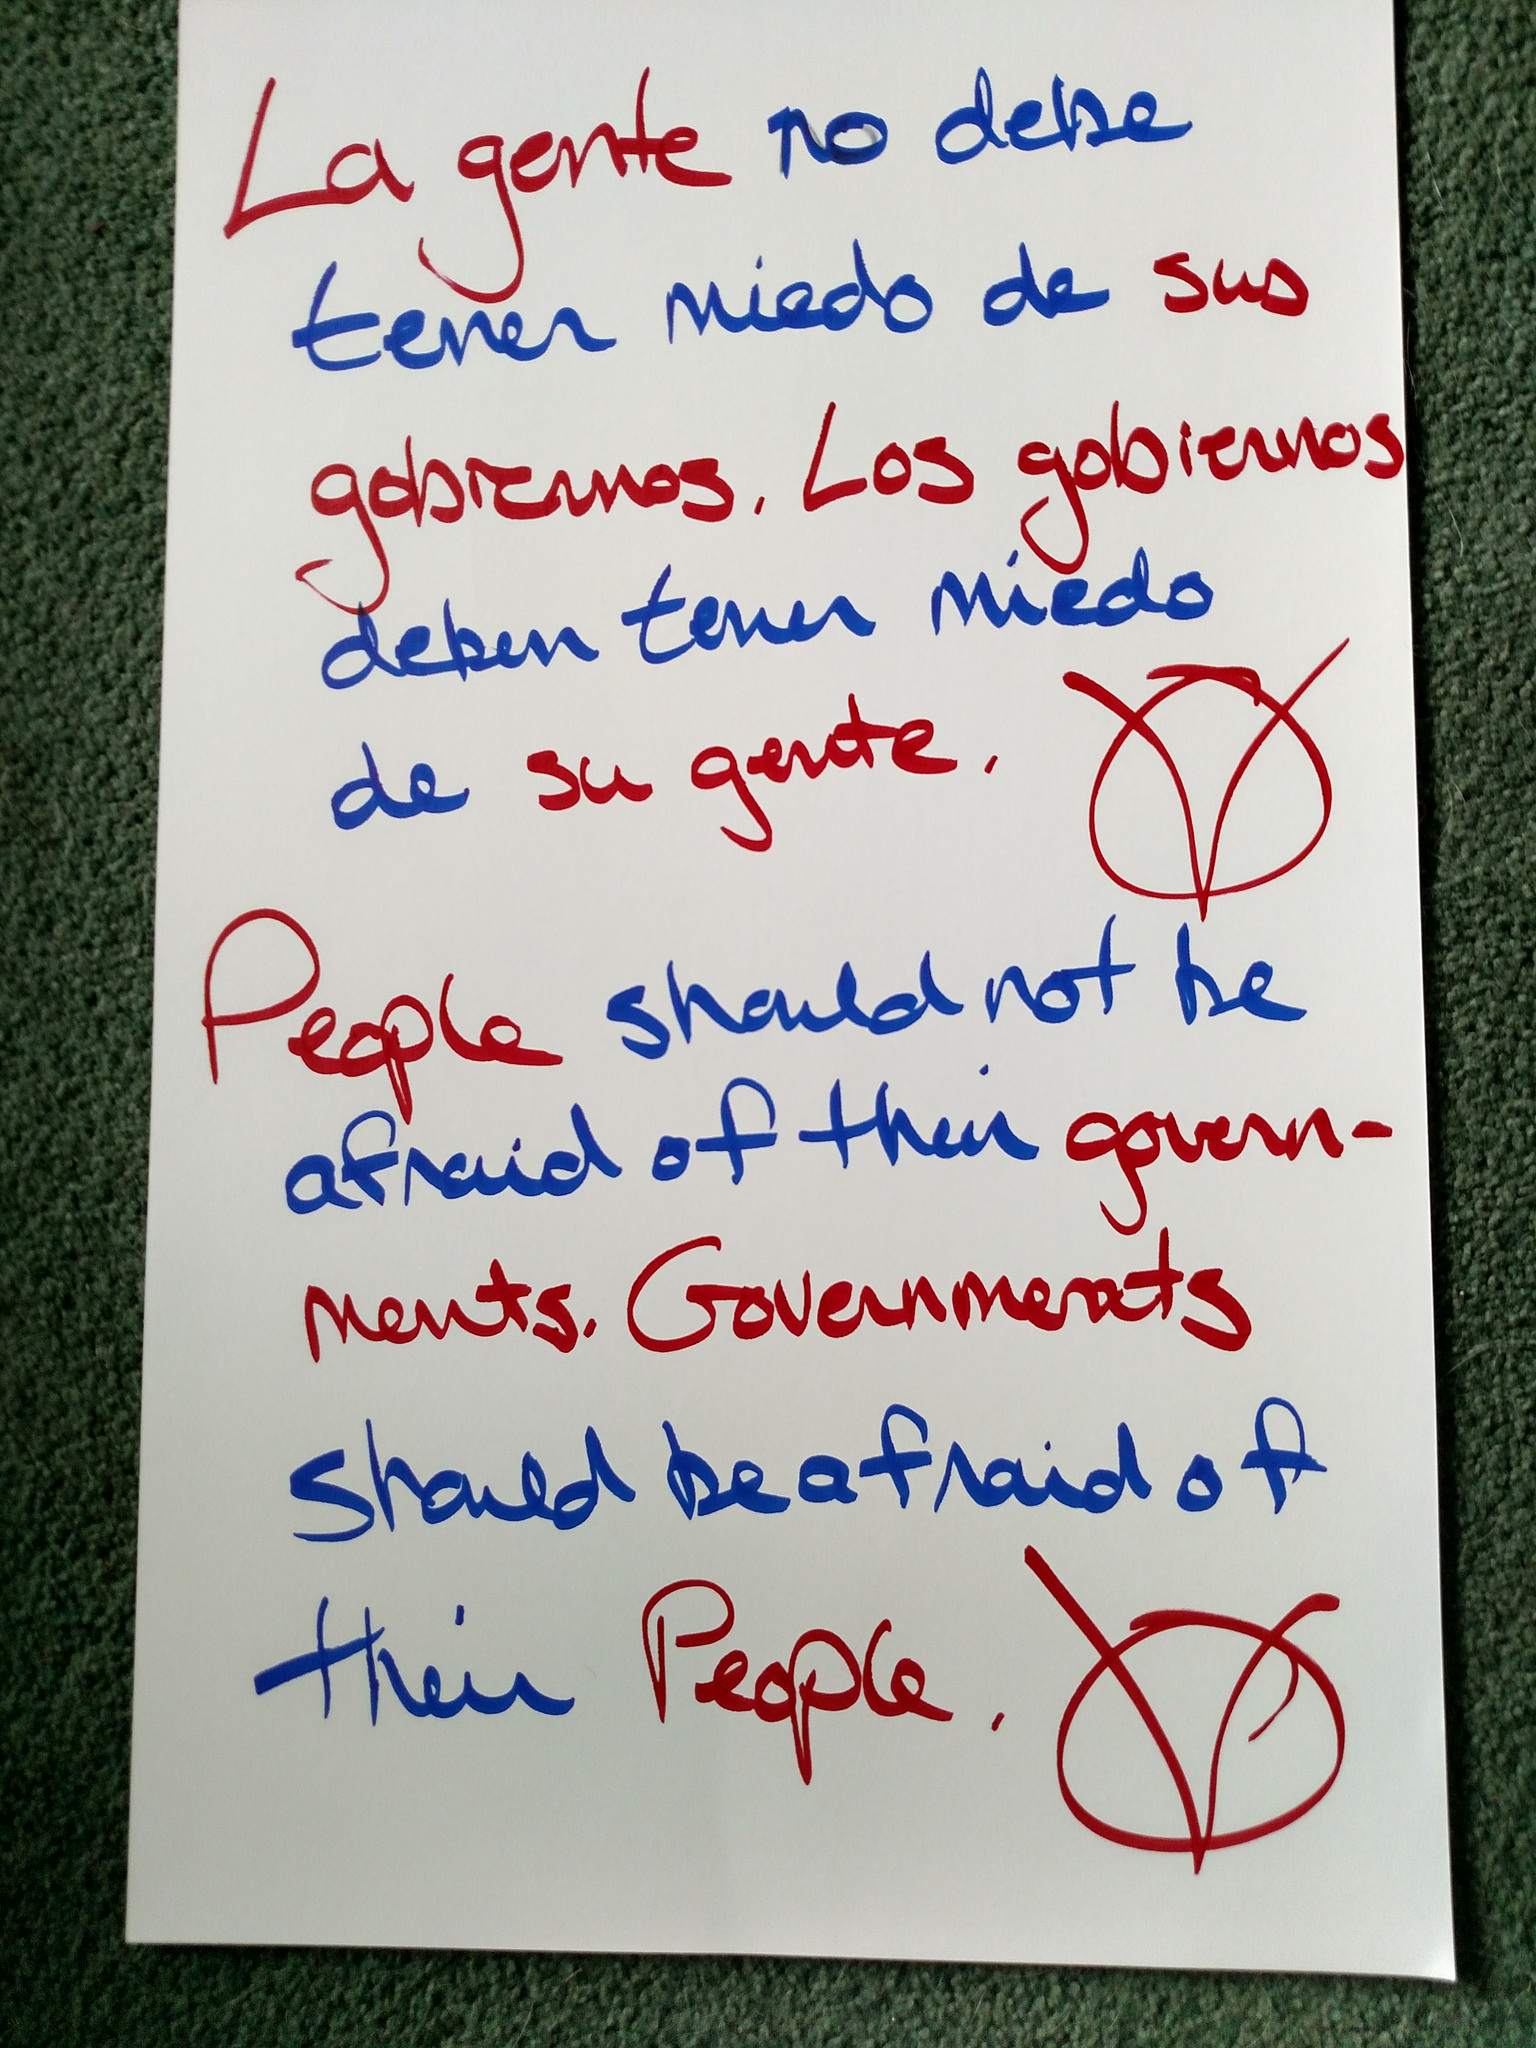 La gente no debe
tener miedo de sus
gobiernos. Los gobiernos
deben tener miedo
de su gente.
People should not be
afraid of their govern-
ments. Governments
should be afraid of
their People.